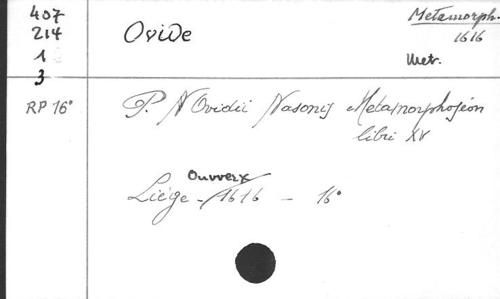 407
214
1
3
RP 16°
Ovide
Metamorph.
1616
Metr.
P. N Ovidii Nasonis Metamorphoseon
libri XV
Ouwerx
Liége - 1616 - 16°